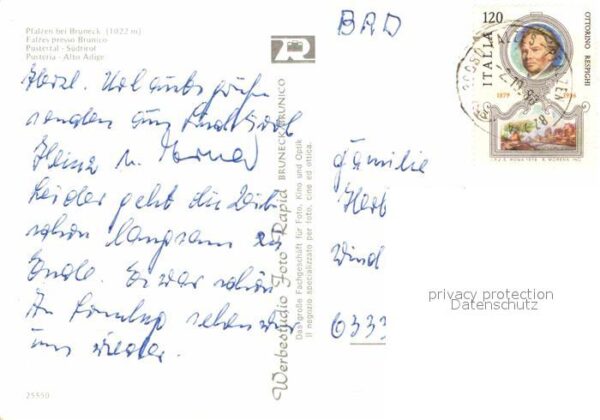 Pfalzen bei Bruneck (1022 m)
Falzes presso Brunico
Pustertal - Südtirol
Pusteria - Alto Adige
Herzl. Urlaubsgrüße
senden aus Südtirol
Heinz u.
Leider geht die Zeit
schon langsam zu
Ende. Es war schön
sehen wir
uns wieder.
25550
Werbestudio Foto Rapid
BRUNECK-BRUNICO
Das große Fachgeschäft für Foto, Kino und Optik
Il negozio specializzato per foto, cine ed ottica.
BRD
Familie
Herb
Wind
6333
ITALIA 120
OTTORINO RESPIGHI
1879 1936
privacy protection
Datenschutz